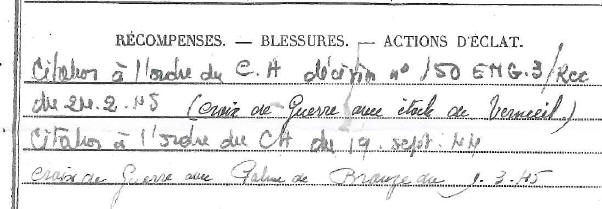 RÉCOMPENSES. — BLESSURES. — ACTIONS D'ÉCLAT.
Citation à l'ordre du C.A décision n° 150 EMG.3/Rec
du 24.2.45 (Croix de Guerre avec étoile de Vermeil)
Citation à l'ordre du CA du 19. sept. 44
Croix de Guerre avec Palme de Bronze du 1.3.45